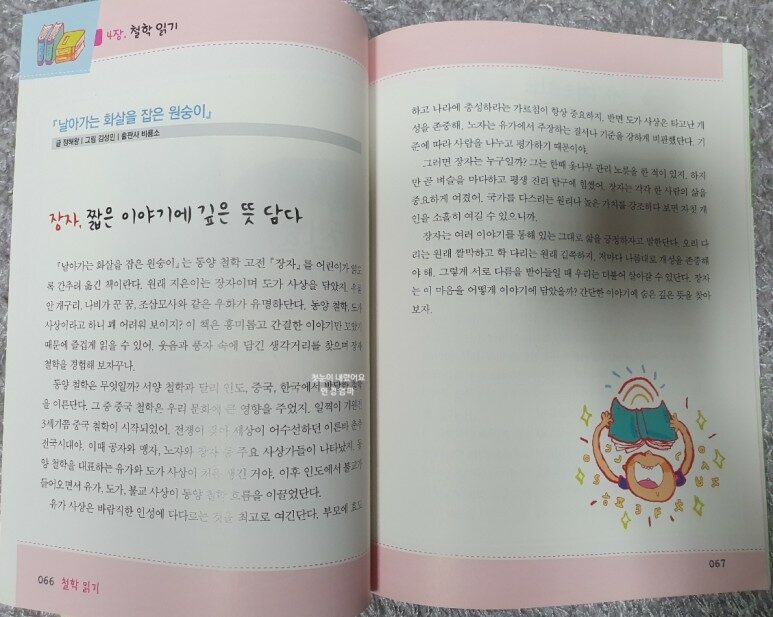 4장. 철학 읽기
『날아가는 화살을 잡은 원숭이』
글 장혜람 | 그림 김상민 | 출판사 비룡소
장자, 짧은 이야기에 깊은 뜻 담다
『날아가는 화살을 잡은 원숭이』는 동양 철학 고전 『장자』를 어린이가 읽도
록 간추려 옮긴 책이란다. 원래 지은이는 장자이며 도가 사상을 담았지. 우물
안 개구리, 나비가 꾼 꿈, 조삼모사와 같은 우화가 유명하단다. 동양 철학, 도가
사상이라고 하니 꽤 어려워 보이지? 이 책은 흥미롭고 간결한 이야기만 모았기
때문에 즐겁게 읽을 수 있어. 웃음과 풍자 속에 담긴 생각거리를 찾으며 장자
철학을 경험해 보자꾸나.
동양 철학은 무엇일까? 서양 철학과 달리 인도, 중국, 한국에서 발달한 철학
을 이른단다. 그 중 중국 철학은 우리 문화에 큰 영향을 주었지. 일찍이 기원전
3세기쯤 중국 철학이 시작되었어. 전쟁이 잦아 세상이 어수선하던 이른바 춘추
전국시대야. 이때 공자와 맹자, 노자와 장자 등 주요 사상가들이 나타났지. 동
양 철학을 대표하는 유가와 도가 사상이 처음 생긴 거야. 이후 인도에서 불교가
들어오면서 유가, 도가, 불교 사상이 동양 철학 흐름을 이끌었단다.
유가 사상은 바람직한 인성에 다다르는 것을 최고로 여긴단다. 부모에 효도
첫눈이 내렸어요
066 철학 읽기
하고 나라에 충성하라는 가르침이 항상 중요하지. 반면 도가 사상은 타고난 개
성을 존중해. 노자는 유가에서 주장하는 질서나 기준을 강하게 비판했단다. 기
준에 따라 사람을 나누고 평가하기 때문이야.
그러면 장자는 누구일까? 그는 한때 옻나무 관리 노릇을 한 적이 있지. 하지
만 곧 벼슬을 마다하고 평생 진리 탐구에 힘썼어. 장자는 각각 한 사람의 삶을
중요하게 여겼어. 국가를 다스리는 원리나 높은 가치를 강조하다 보면 자칫 개
인을 소홀히 여길 수 있으니까.
장자는 여러 이야기를 통해 있는 그대로 삶을 긍정하자고 말한단다. 오리 다
리는 원래 짤막하고 학 다리는 원래 길쭉하지. 저마다 나름대로 개성을 존중해
야 해. 그렇게 서로 다름을 받아들일 때 우리는 더불어 살아갈 수 있단다. 장자
는 이 마음을 어떻게 이야기에 담았을까? 간단한 이야기에 숨은 깊은 뜻을 찾아
보자.
067